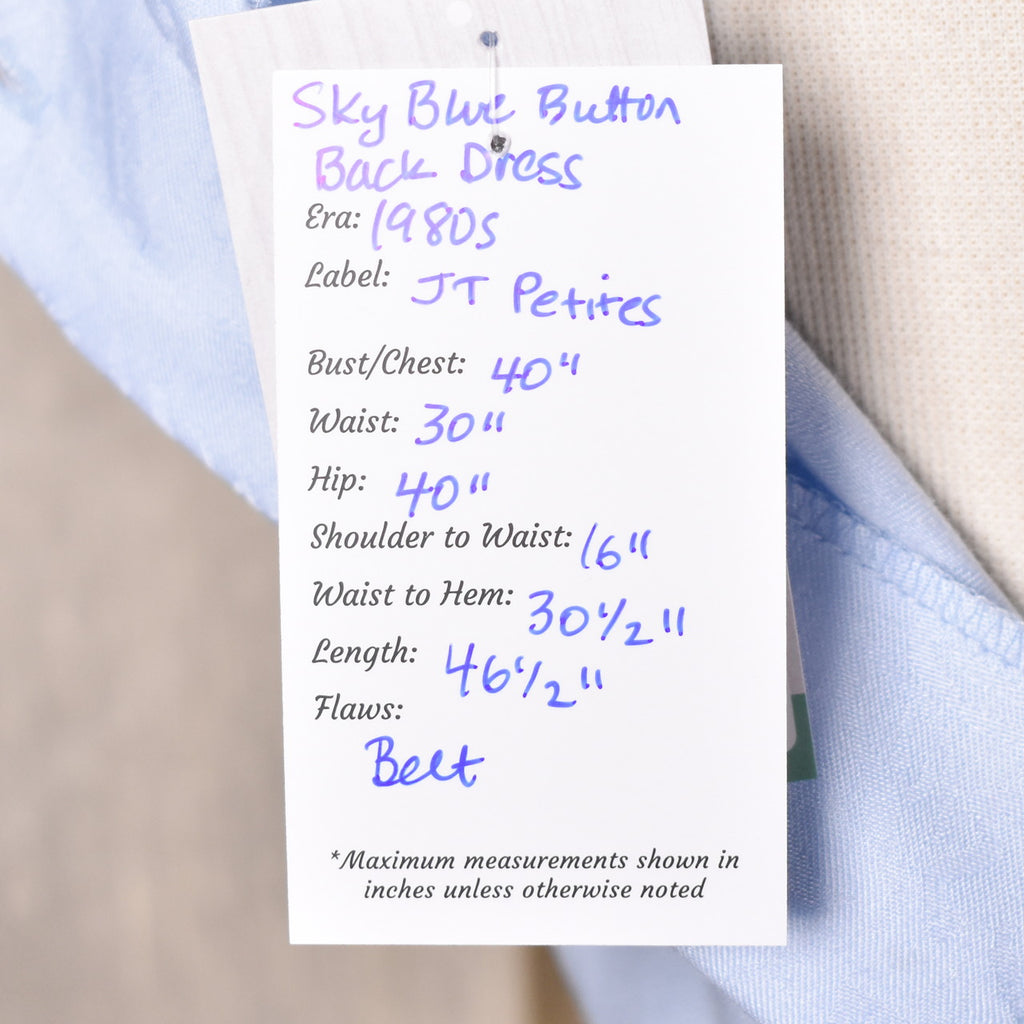 Sky Blue Button
Back Dress
Era: 1980s
Label: JT Petites
Bust/Chest: 40"
Waist: 30"
Hip: 40"
Shoulder to Waist: 16"
Waist to Hem: 30 1/2"
Length: 46 1/2"
Flaws:
Belt
*Maximum measurements shown in
inches unless otherwise noted